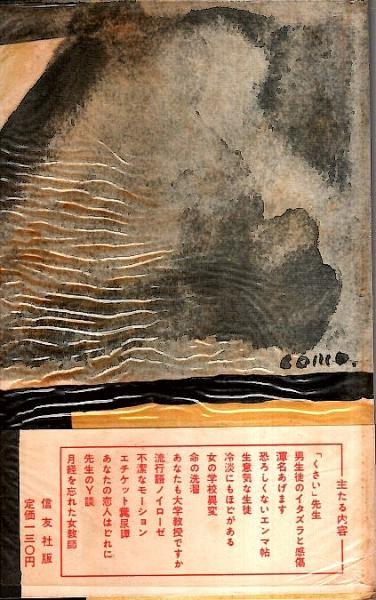 como.
主たる内容
「くさい」先生
男生徒のイタズラと感傷
渾名あげます
恐ろしくないエンマ帖
生意気な生徒
冷淡にもほどがある
女の学校異変
命の洗濯
あなたも大学教授ですか
流行語ノイローゼ
不潔なモーション
エチケット糞尿譚
あなたの恋人はどれに
先生のY談
月経を忘れた女教師
信友社版
定価一三〇円